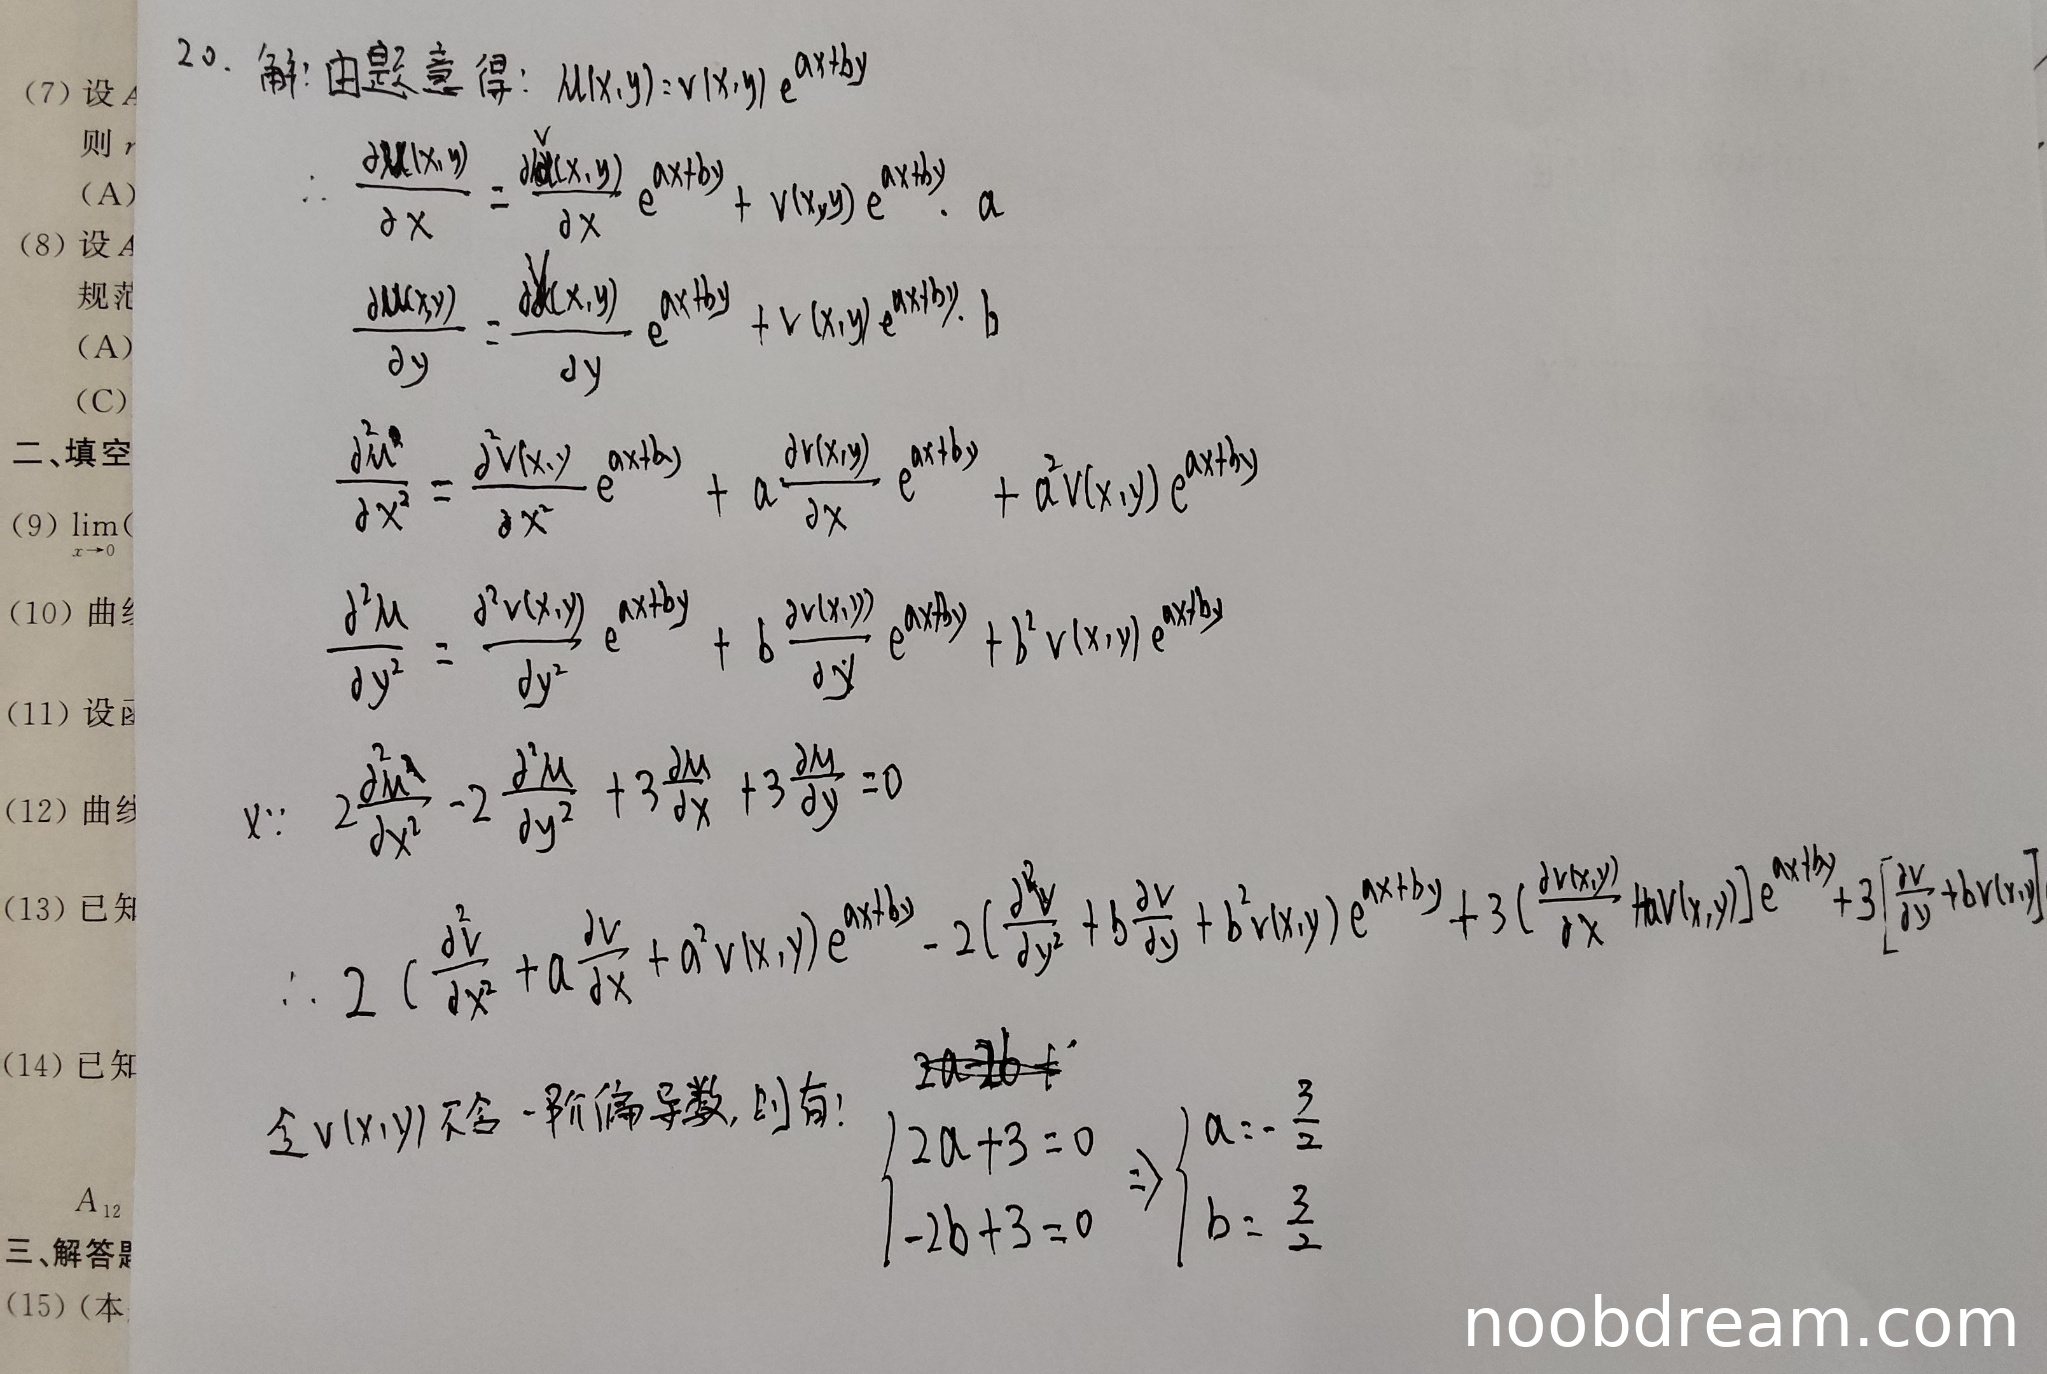 (7) 设 A
则 r
(A)
(8) 设 A
规范
(A)
(C)
二、填空
(9) lim(
x→0
(10) 曲线
(11) 设函
(12) 曲线
(13) 已知
(14) 已知
A₁₂
三、解答题
(15) (本
20. 解: 由题意得: u(x,y)=v(x,y) e^{ax+by}
∴ ∂u(x,y)/∂x = ∂v(x,y)/∂x e^{ax+by} + v(x,y) e^{ax+by} · a
∂u(x,y)/∂y = ∂v(x,y)/∂y e^{ax+by} + v(x,y) e^{ax+by} · b
∂²u/∂x² = ∂²v(x,y/∂x² e^{ax+by} + a ∂v(x,y)/∂x e^{ax+by} + a²v(x,y) e^{ax+by}
∂²u/∂y² = ∂²v(x,y)/∂y² e^{ax+by} + b ∂v(x,y)/∂y e^{ax+by} + b² v(x,y) e^{ax+by}
又∵ 2 ∂²u/∂x² - 2 ∂²u/∂y² + 3 ∂u/∂x + 3 ∂u/∂y = 0
∴ 2 (∂²v/∂x² + a ∂v/∂x + a² v(x,y)) e^{ax+by} - 2 (∂²v/∂y² + b ∂v/∂y + b² v(x,y)) e^{ax+by} + 3 (∂v(x,y)/∂x + av(x,y)] e^{ax+by} + 3 [∂v/∂y + bv(x,y)]
令 v(x,y) 不含一阶偏导数, 则有: { 2a+3=0 => { a=-3/2
-2b+3=0 b=3/2
noobdream.com